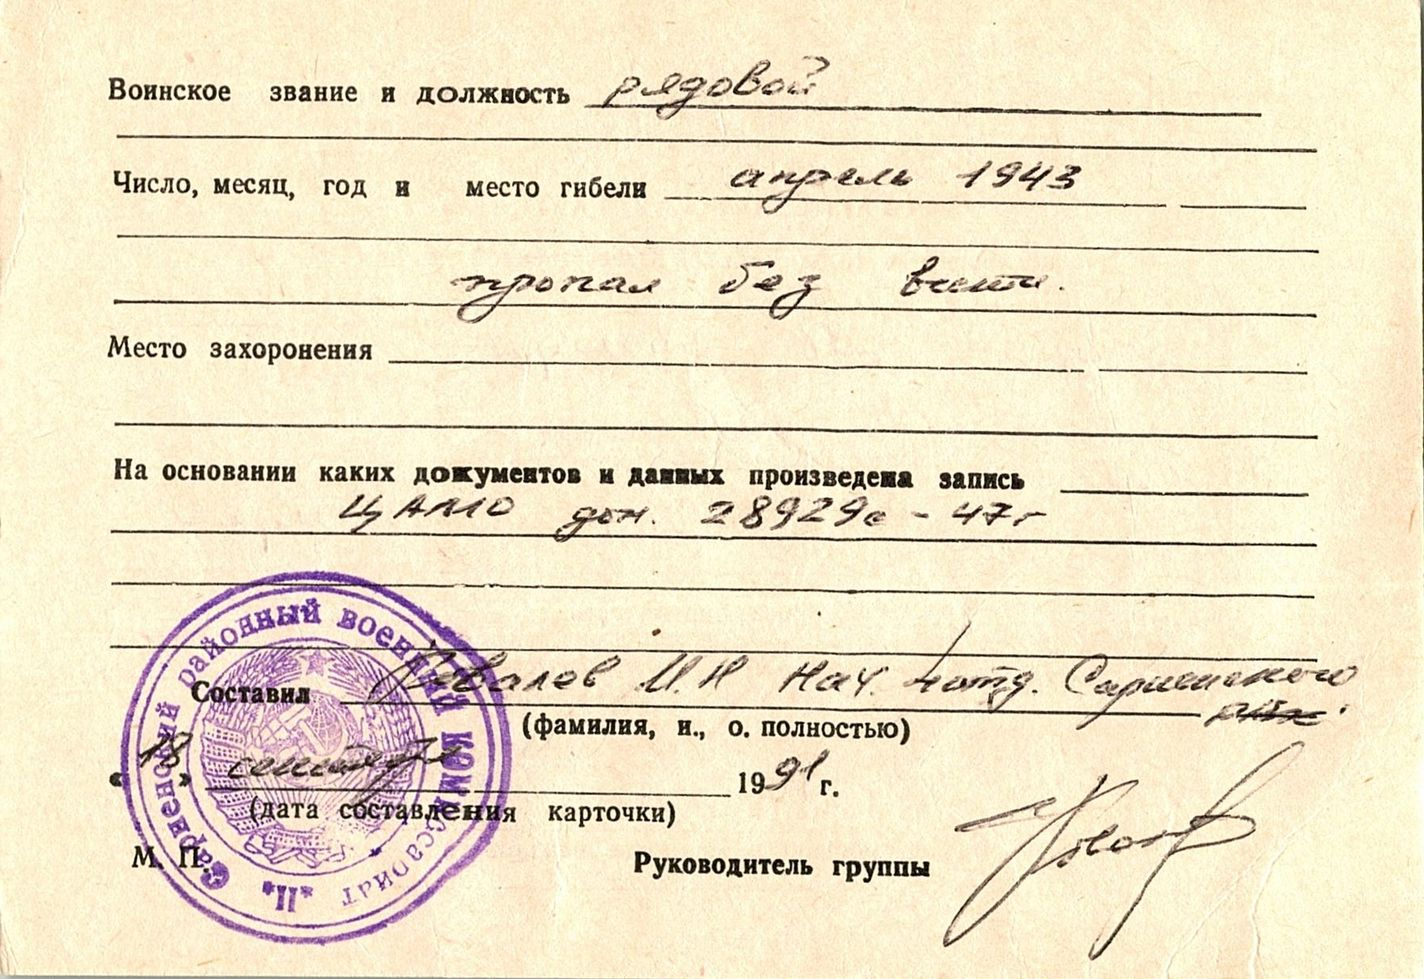 Воинское звание и должность рядовой
Число, месяц, год и место гибели апрель 1943
пропал без вести.
Место захоронения
На основании каких документов и данных произведена запись
ЦАМО дон. 28929с - 47г
Составил Ковалев И.И Нач. 4 отд. Сарненского РВК.
(фамилия, и., о. полностью)
"18" сентября 1991 г.
(дата составления карточки)
М. П. Руководитель группы
Сарненский районный военный комиссариат